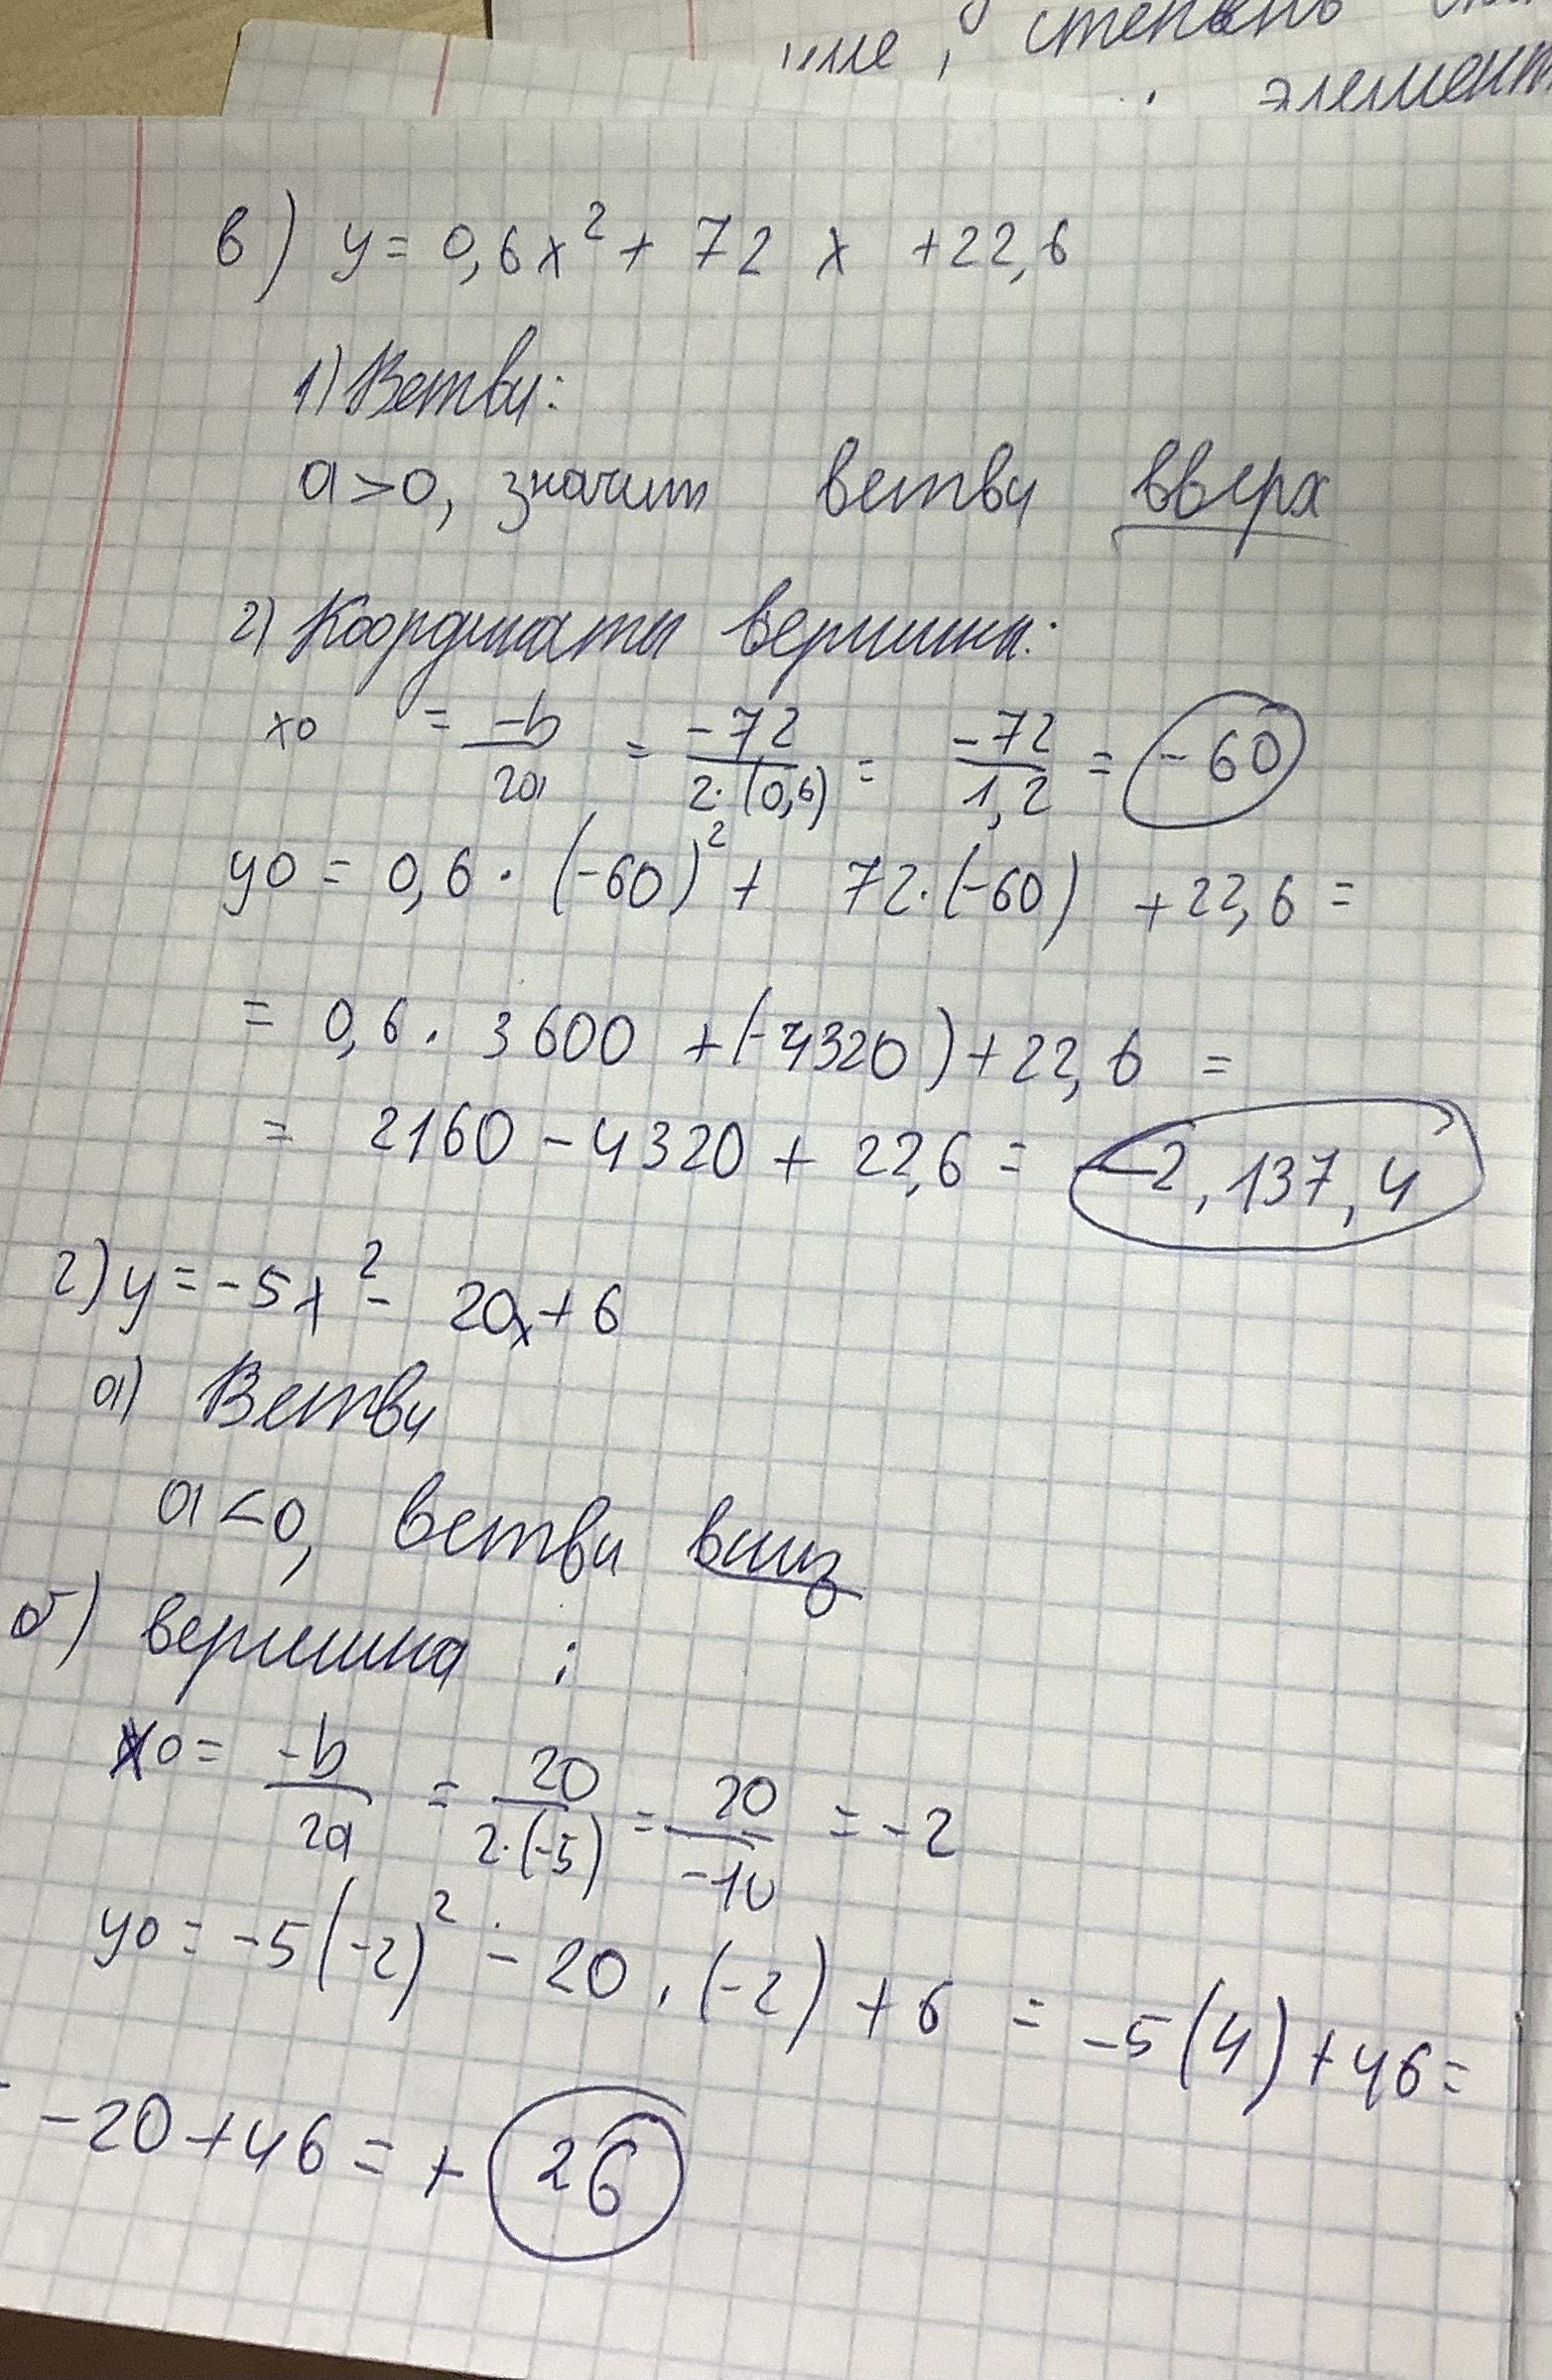 степень
элемент
в) y = 0,6x² + 72 x + 22,6
1) Ветви:
a>0, значит ветви вверх
2) Координаты вершины:
x0 = -b/2a = -72/2·(0,6) = -72/1,2 = -60
y0 = 0,6 · (-60)² + 72·(-60) + 22,6 =
= 0,6 · 3600 + (-4320) + 22,6 =
= 2160 - 4320 + 22,6 = -2,137,4
г) y = -5x² - 20x + 6
а) Ветви
a<0, ветви вниз
б) вершина :
x0 = -b/2a = 20/2·(-5) = 20/-10 = -2
y0 = -5(-2)² - 20 · (-2) + 6 = -5(4) + 46 =
-20 + 46 = + 26